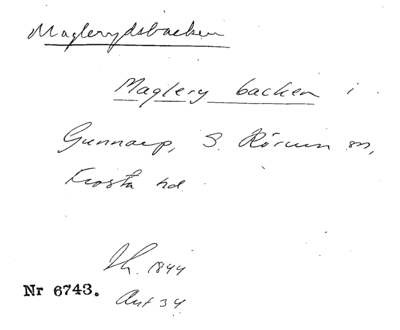 Maglerydsbacken
Maglery backen i
Gunnarp, S. Rörum sn,
Frosta hd.
Th. 1844
Nr 6743.
Ant 34